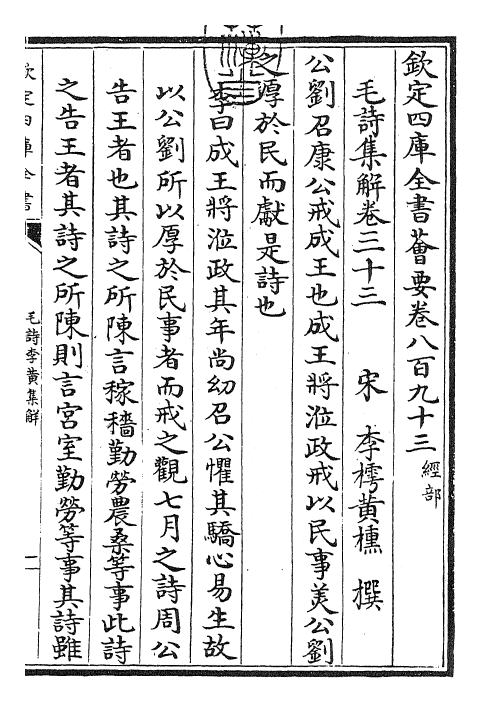 欽定四庫全書薈要卷八百九十三 經部
毛詩集解卷三十三 宋 李樗黃櫄 撰
公劉召康公戒成王也成王將涖政戒以民事美公劉
之厚於民而獻是詩也
李曰成王將涖政其年尚幼召公懼其驕心易生故
以公劉所以厚於民事者而戒之觀七月之詩周公
告王者也其詩之所陳言稼穡勤勞農桑等事此詩
之告王者其詩之所陳則言宮室勤勞等事其詩雖
欽定四庫全書
毛詩李黃集解